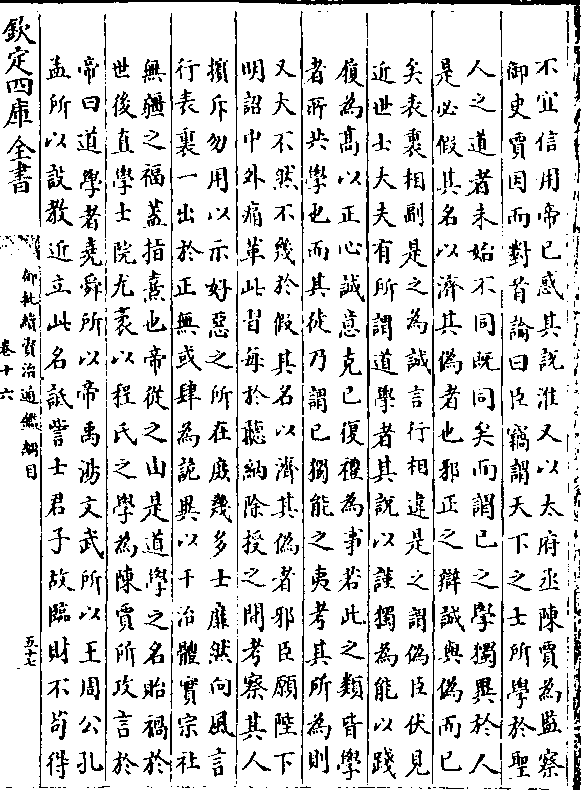 不宜信用帝已惑其說淮又以太府丞陳賈為監察
御史賈因面對首論曰臣竊謂天下之士所學於聖
人之道者未始不同既同矣而謂已之學獨異於人
是必假其名以濟其偽者也邪正之辯誠與偽而已
矣表裏相副是之為誠言行相違是之謂偽臣伏見
近世士大夫有所謂道學者其說以謹獨為能以踐
履為高以正心誠意克已復禮為事若此之類皆學
者所共學也而其徒乃謂已獨能之夷考其所為則
又大不然不幾於假其名以濟其偽者邪臣願陛下
明詔中外痛革此習每於聽納除授之間考察其人
擯斥勿用以示好惡之所在庶幾多士靡然向風言
行表裏一出於正無或肆為詭異以干治體實宗社
無疆之福蓋指熹也帝從之由是道學之名貽禍於
世後直學士院尤袤以程氏之學為陳賈所攻言於
帝曰道學者堯舜所以帝禹湯文武所以王周公孔
孟所以設教近立此名詆訾士君子故臨財不苟得
欽定四庫全書
御批續資治通鑑綱目
卷十六
五十七